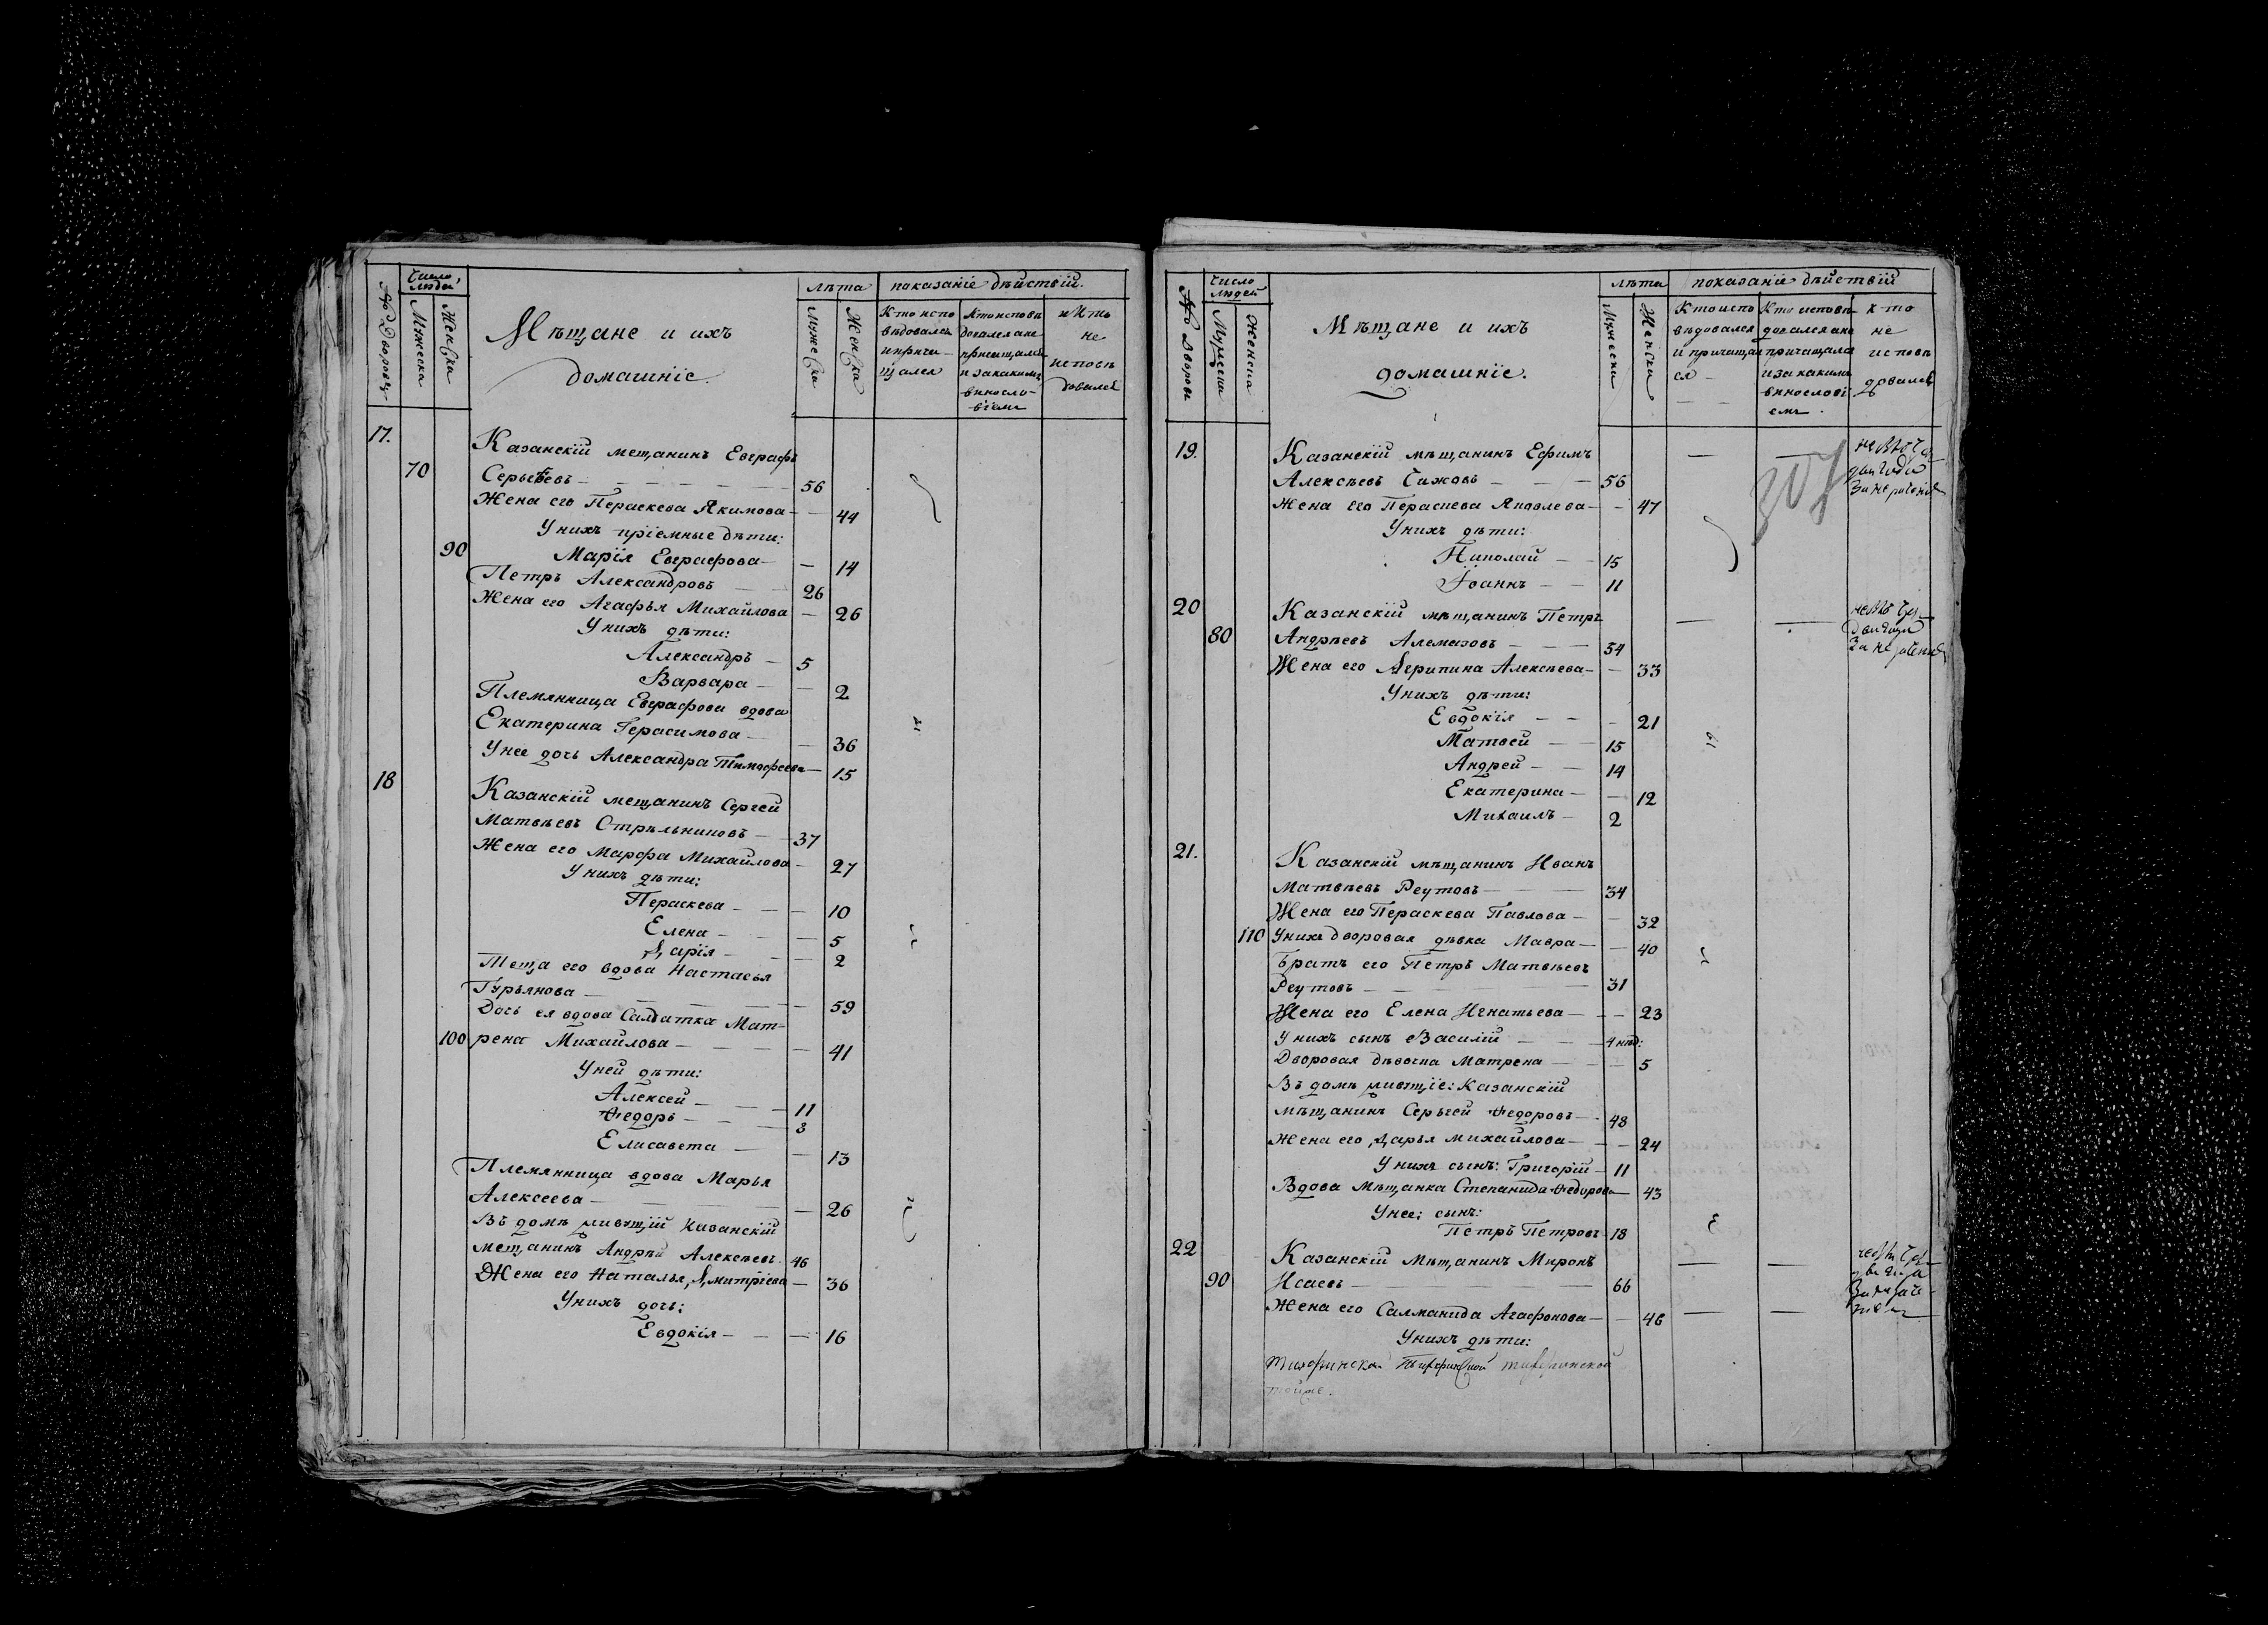 Число людей
№ Дворовъ
Мужеска
Женска
Мѣщане и ихъ
домашніе.
лѣта
Мужеска
Женска
показаніе дѣйствій.
Кто испо
вѣдовался
и прича-
щался
Кто исповѣ
довался а не
причащался
и за какимъ
винносло-
віемъ
и Кто
не
исповѣ
довался
17.
Казанскій мещанинъ Евграфъ
70 Сергѣевъ 56
Жена его Пераскева Якимова 44
У нихъ пріемные дѣти:
90 Марія Евграфова 14
Петръ Александровъ 26
Жена его Агафья Михайлова 26
У нихъ дѣти:
Александръ 5
Варвара 2
Племянница Евграфова вдова
Екатерина Герасимова 36
У нее дочь Александра Тимофеева 15
18
Казанскій мещанинъ Сергей
Матвѣевъ Стрѣльниковъ 37
Жена его Марфа Михайлова 27
У нихъ дѣти:
Пераскева 10
Елена 5
Дарія 2
Теща его вдова Настасья
Гурьянова 59
Дочь ея вдова Салдатка Мат-
100 рена Михайлова 41
У ней дѣти:
Алексей 11
Ѳедоръ 8
Елисавета 13
Племянница вдова Марья
Алексеева 26
Въ домѣ живущій Казанскій
мещанинъ Андрѣй Алексѣевъ 46
Жена его Наталья Дмитріева 36
У нихъ дочь:
Евдокія 16
Число людей
№ Дворовъ
Мужеска
Женска
Мѣщане и ихъ
домашніе.
лѣта
Мужески
Женски
показаніе дѣйствій
Кто испо
вѣдовался
и причащал
ся
Кто исповѣ
довался а не
причащался
и за какимъ
виннослові
емъ.
кто
не
исповѣ
довался
19.
307
Казанскій мѣщанинъ Ефимъ
Алексѣевъ Чижовъ 56
Жена его Пераскева Яковлева 47
У нихъ дѣти:
Николай 15
Іоаннъ 11
20
Казанскій мѣщанинъ Петръ
80 Андрѣевъ Алемазовъ 34
Жена его Агрипина Алексѣева 33
У нихъ дѣти:
Евдокія 21
Матвей 15
Андрей 14
Екатерина 12
Михаилъ 2
21.
Казанскій мѣщанинъ Иванъ
Матвѣевъ Реутовъ 34
Жена его Пераскева Павлова 32
110 У нихъ дворовая дѣвка Мавра 40
Братъ его Петръ Матвѣевъ
Реутовъ 31
Жена его Елена Игнатьева 23
У нихъ сынъ Василій 4 нѣд:
Дворовая дѣвочка Матрена 5
Въ домѣ живущіе: Казанскій
мѣщанинъ Сергѣй Ѳедоровъ 48
Жена его Дарья Михайлова 24
У нихъ сынъ: Григорій 11
Вдова Мѣщанка Степанида Ѳедорова 43
У нее: сынъ:
Петръ Петровъ 18
22
Казанскій мѣщанинъ Миронъ
90 Исаевъ 66
Жена его Салманида Агафонова 46
У нихъ дѣти: